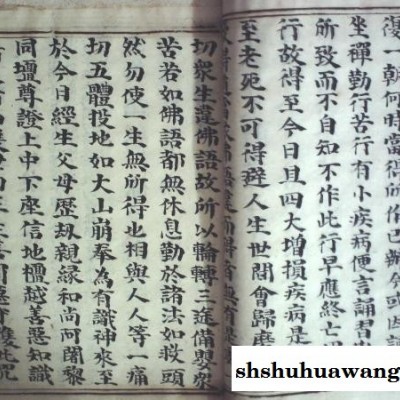 復一朝何時當得所作已辦今或因
坐禪勤行苦行有小疾病便言誦習
所致而不自知不作此行早應終亡
行故得至今日且四大增損疾病是
至老死不可得避人生世間會歸磨
切衆生違佛語故所以輪轉三途備嬰衆
苦若如佛語都無休息勤於諸法如救頭
然勿使一生無所得也相與人人等一痛
切五體投地如大山崩奉為有識神來至
於今日經生父母歷劫親緣和尚阿闍黎
同壇尊證上中下座信施檀越善惡知識
shshuhuawang